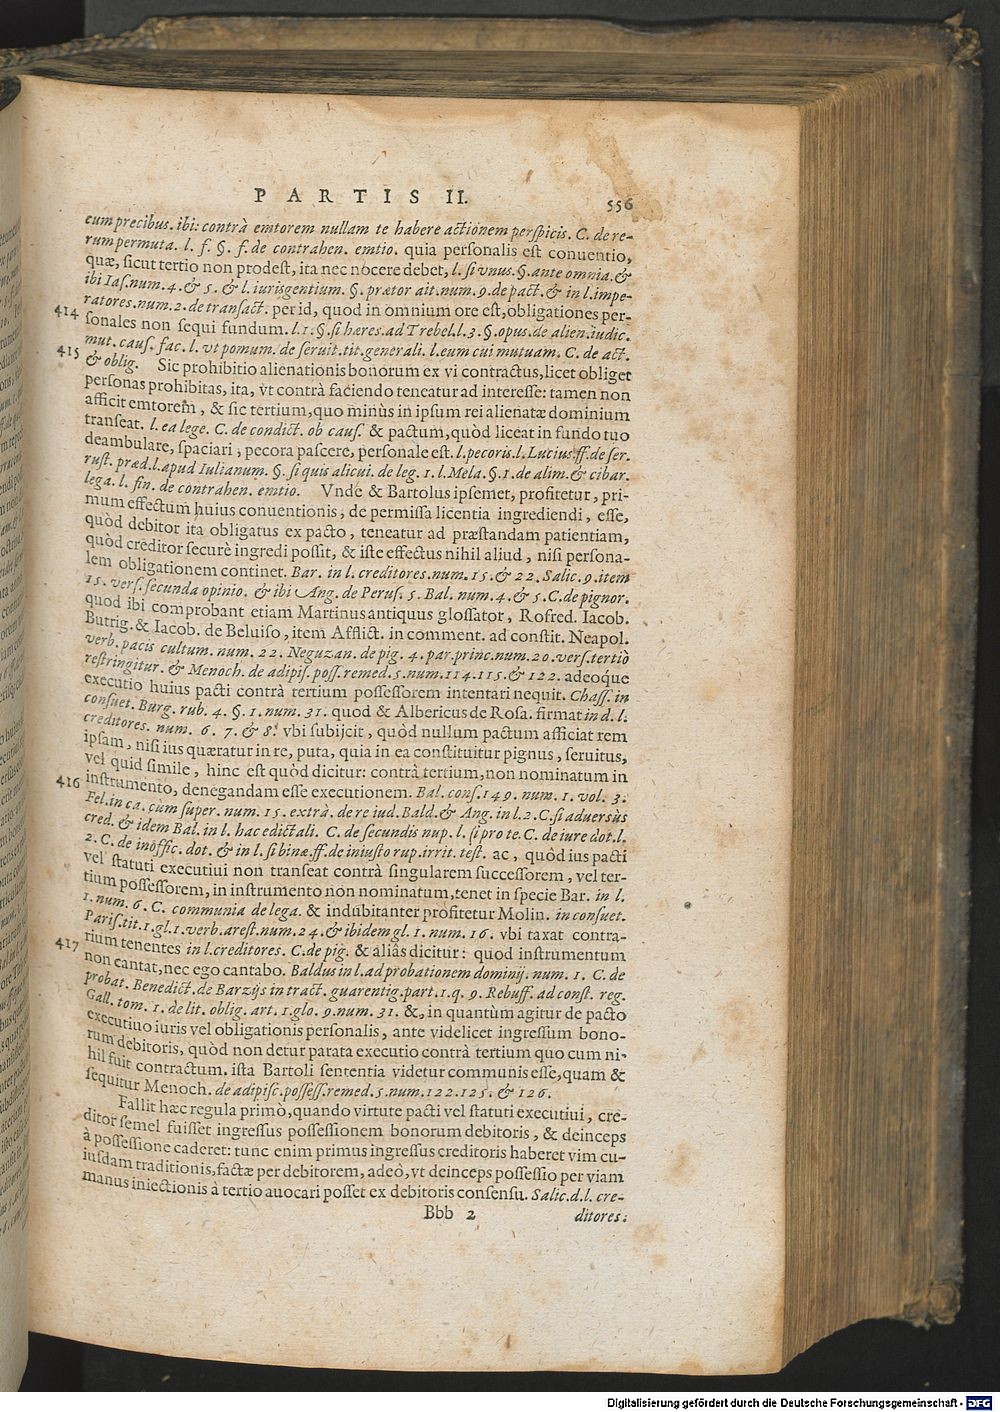 PARTIS II. 556
cum precibus. ibi: contrà emtorem nullam te habere actionem perspicis. C. de re-
rum permuta. l. f. §. f. de contrahen. emtio. quia personalis est conuentio,
quæ, sicut tertio non prodest, ita nec nocere debet, l. si vnus. §. ante omnia. &
ibi Ias. num. 4. & 5. & l. iurisgentium. §. prætor ait. num. 9. de pact. & in l. impe-
ratores. num. 2. de transact. per id, quod in omnium ore est, obligationes per-
414 sonales non sequi fundum. l. 1. §. si hæres. ad Trebel. l. 3. §. opus. de alien. iudic.
mut. caus. fac. l. vt pomum. de seruit. tit. generali. l. eum cui mutuam. C. de act.
415 & oblig. Sic prohibitio alienationis bonorum ex vi contractus, licet obliget
personas prohibitas, ita, vt contrà faciendo teneatur ad interesse: tamen non
afficit emtorem, & sic tertium, quo minùs in ipsum rei alienatæ dominium
transeat. l. ea lege. C. de condict. ob caus. & pactum, quòd liceat in fundo tuo
deambulare, spaciari, pecora pascere, personale est. l. pecoris. l. Lucius. ff. de ser.
rust. præd. l. apud Iulianum. §. si quis alicui. de leg. 1. l. Mela. §. 1. de alim. & cibar.
lega. l. fin. de contrahen. emtio. Vnde & Bartolus ipsemet, profitetur, pri-
mum effectum huius conuentionis, de permissa licentia ingrediendi, esse,
quòd debitor ita obligatus ex pacto, teneatur ad præstandam patientiam,
quòd creditor securè ingredi possit, & iste effectus nihil aliud, nisi persona-
lem obligationem continet. Bar. in l. creditores. num. 15. & 22. Salic. 9. item
15. vers. secunda opinio. & ibi Ang. de Perus. 5. Bal. num. 4. & 5. C. de pignor.
quod ibi comprobant etiam Martinus antiquus glossator, Rofred. Iacob.
Butrig. & Iacob. de Beluiso, item Afflict. in comment. ad constit. Neapol.
verb. pacis cultum. num. 22. Neguzan. de pig. 4. par. princ. num. 20. vers. tertiò
restringitur. & Menoch. de adipis. poss. remed. 5. num. 114. 115. & 122. adeoque
executio huius pacti contrà tertium possessorem intentari nequit. Chass. in
consuet. Burg. rub. 4. §. 1. num. 31. quod & Albericus de Rosa. firmat in d. l.
creditores. num. 6. 7. & 8. vbi subijcit, quòd nullum pactum afficiat rem
ipsam, nisi ius quæratur in re, puta, quia in ea constituitur pignus, seruitus,
vel quid simile, hinc est quòd dicitur: contrà tertium, non nominatum in
416 instrumento, denegandam esse executionem. Bal. cons. 149. num. 1. vol. 3.
Fel. in ca. cum super. num. 15. extrà. de re iud. Bald. & Ang. in l. 2. C. si aduersùs
cred. & idem Bal. in l. hac edictali. C. de secundis nup. l. si pro te. C. de iure dot. l.
2. C. de inoffic. dot. & in l. si binæ. ff. de iniusto rup. irrit. test. ac, quòd ius pacti
vel statuti executiui non transeat contrà singularem successorem, vel ter-
tium possessorem, in instrumento non nominatum, tenet in specie Bar. in l.
1. num. 6. C. communia de lega. & indubitanter profitetur Molin. in consuet.
Paris. tit. 1. gl. 1. verb. arest. num. 24. & ibidem gl. 1. num. 16. vbi taxat contra-
rium tenentes in l. creditores. C. de pig. & aliàs dicitur: quod instrumentum
417 non cantat, nec ego cantabo. Baldus in l. ad probationem dominij. num. 1. C. de
probat. Benedict. de Barzijs in tract. guarentig. part. 1. q. 9. Rebuff. ad const. reg.
Gall. tom. 1. de lit. oblig. art. 1. glo. 9. num. 31. &, in quantùm agitur de pacto
executiuo iuris vel obligationis personalis, ante videlicet ingressum bono-
rum debitoris, quòd non detur parata executio contrà tertium quo cum ni-
hil fuit contractum. ista Bartoli sententia videtur communis esse, quam &
sequitur Menoch. de adipisc. possess. remed. 5. num. 122. 125. & 126.
Fallit hæc regula primò, quando virtute pacti vel statuti executiui, cre-
ditor semel fuisset ingressus possessionem bonorum debitoris, & deinceps
à possessione caderet: tunc enim primus ingressus creditoris haberet vim cu-
iusdam traditionis, factæ per debitorem, adeò, vt deinceps possessio per viam
manus iniectionis à tertio auocari posset ex debitoris consensu. Salic. d. l. cre-
Bbb 2 ditores:
Digitalisierung gefördert durch die Deutsche Forschungsgemeinschaft - DFG